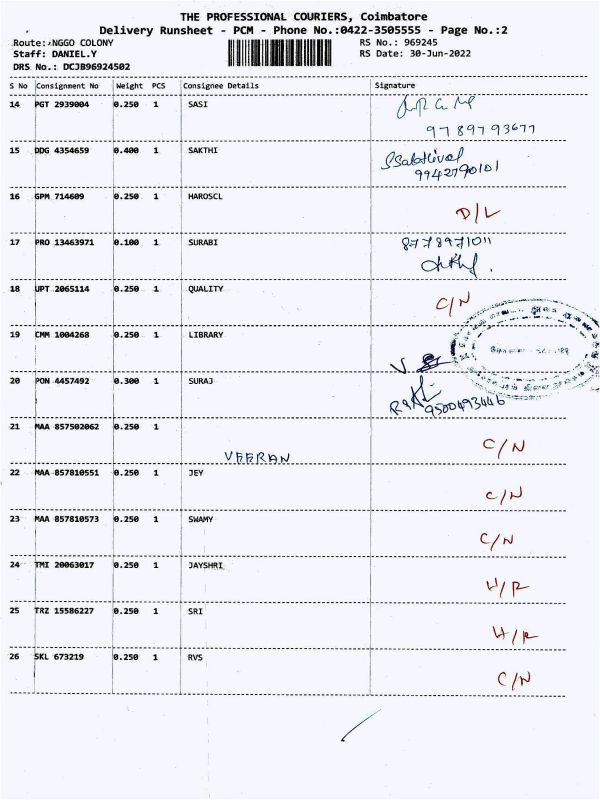 THE PROFESSIONAL COURIERS, Coimbatore
Delivery Runsheet - PCM - Phone No.:0422-3505555 - Page No.:2
Route: NGGO COLONY
RS No.: 969245
Staff: DANIEL.Y
RS Date: 30-Jun-2022
DRS No.: DCJB96924502
S No Consignment No Weight PCS Consignee Details Signature
14 PGT 2939004 0.250 1 SASI
9789793677
15 DDG 4354659 0.400 1 SAKTHI
9942790101
16 GPM 714609 0.250 1 HAROSCL
D/L
17 PRO 13463971 0.100 1 SURABI 8778971011
18 UPT 2065114 0.250 1 QUALITY
C/N
19 CMM 1004268 0.250 1 LIBRARY
20 PON 4457492 0.300 1 SURAJ
9500493446
21 MAA 857502062 0.250 1
VEERAN C/N
22 MAA 857810551 0.250 1 JEY
C/N
23 MAA 857810573 0.250 1 SWAMY
C/N
24 TMI 20063017 0.250 1 JAYSHRI
H/R
25 TRZ 15586227 0.250 1 SRI
H/R
26 SKL 673219 0.250 1 RVS
C/N